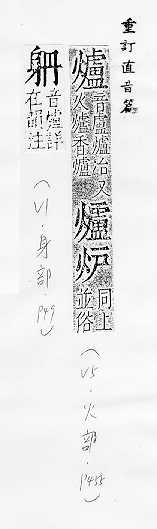 重訂直音篇
爐
音盧爐冶又
火爐香爐
炉
同上
並俗
(V5.火部.P458)
音爐詳
在韻注
(V1.身部.P49)